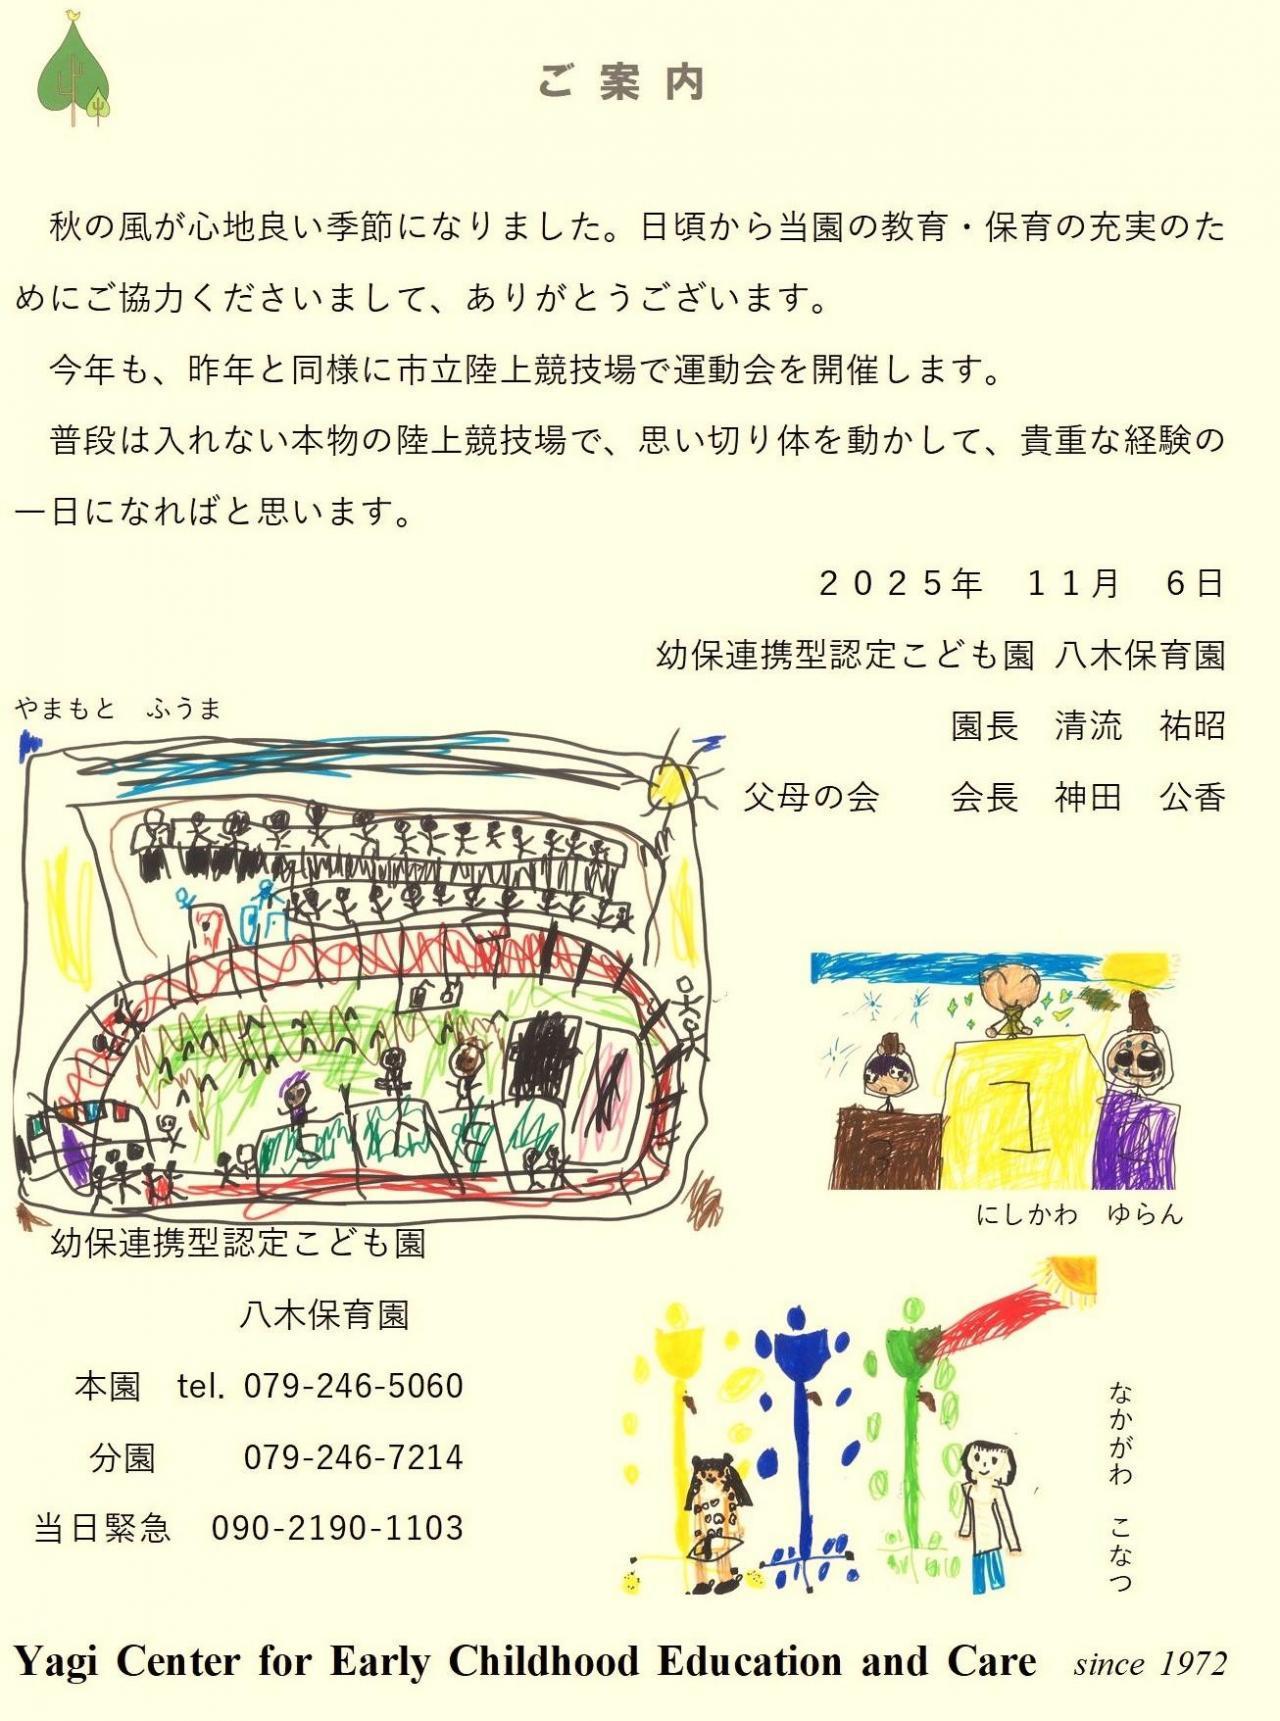 ご案内
秋の風が心地良い季節になりました。日頃から当園の教育・保育の充実のた
めにご協力くださいまして、ありがとうございます。
今年も、昨年と同様に市立陸上競技場で運動会を開催します。
普段は入れない本物の陸上競技場で、思い切り体を動かして、貴重な経験の
一日になればと思います。
２０２５年　１１月　６日
幼保連携型認定こども園 八木保育園
園長　清流　祐昭
父母の会　　会長　神田　公香
やまもと　ふうま
1
にしかわ　ゆらん
幼保連携型認定こども園
八木保育園
本園　tel. 079-246-5060
分園　079-246-7214
当日緊急　090-2190-1103
なかがわ　こなつ
Yagi Center for Early Childhood Education and Care since 1972